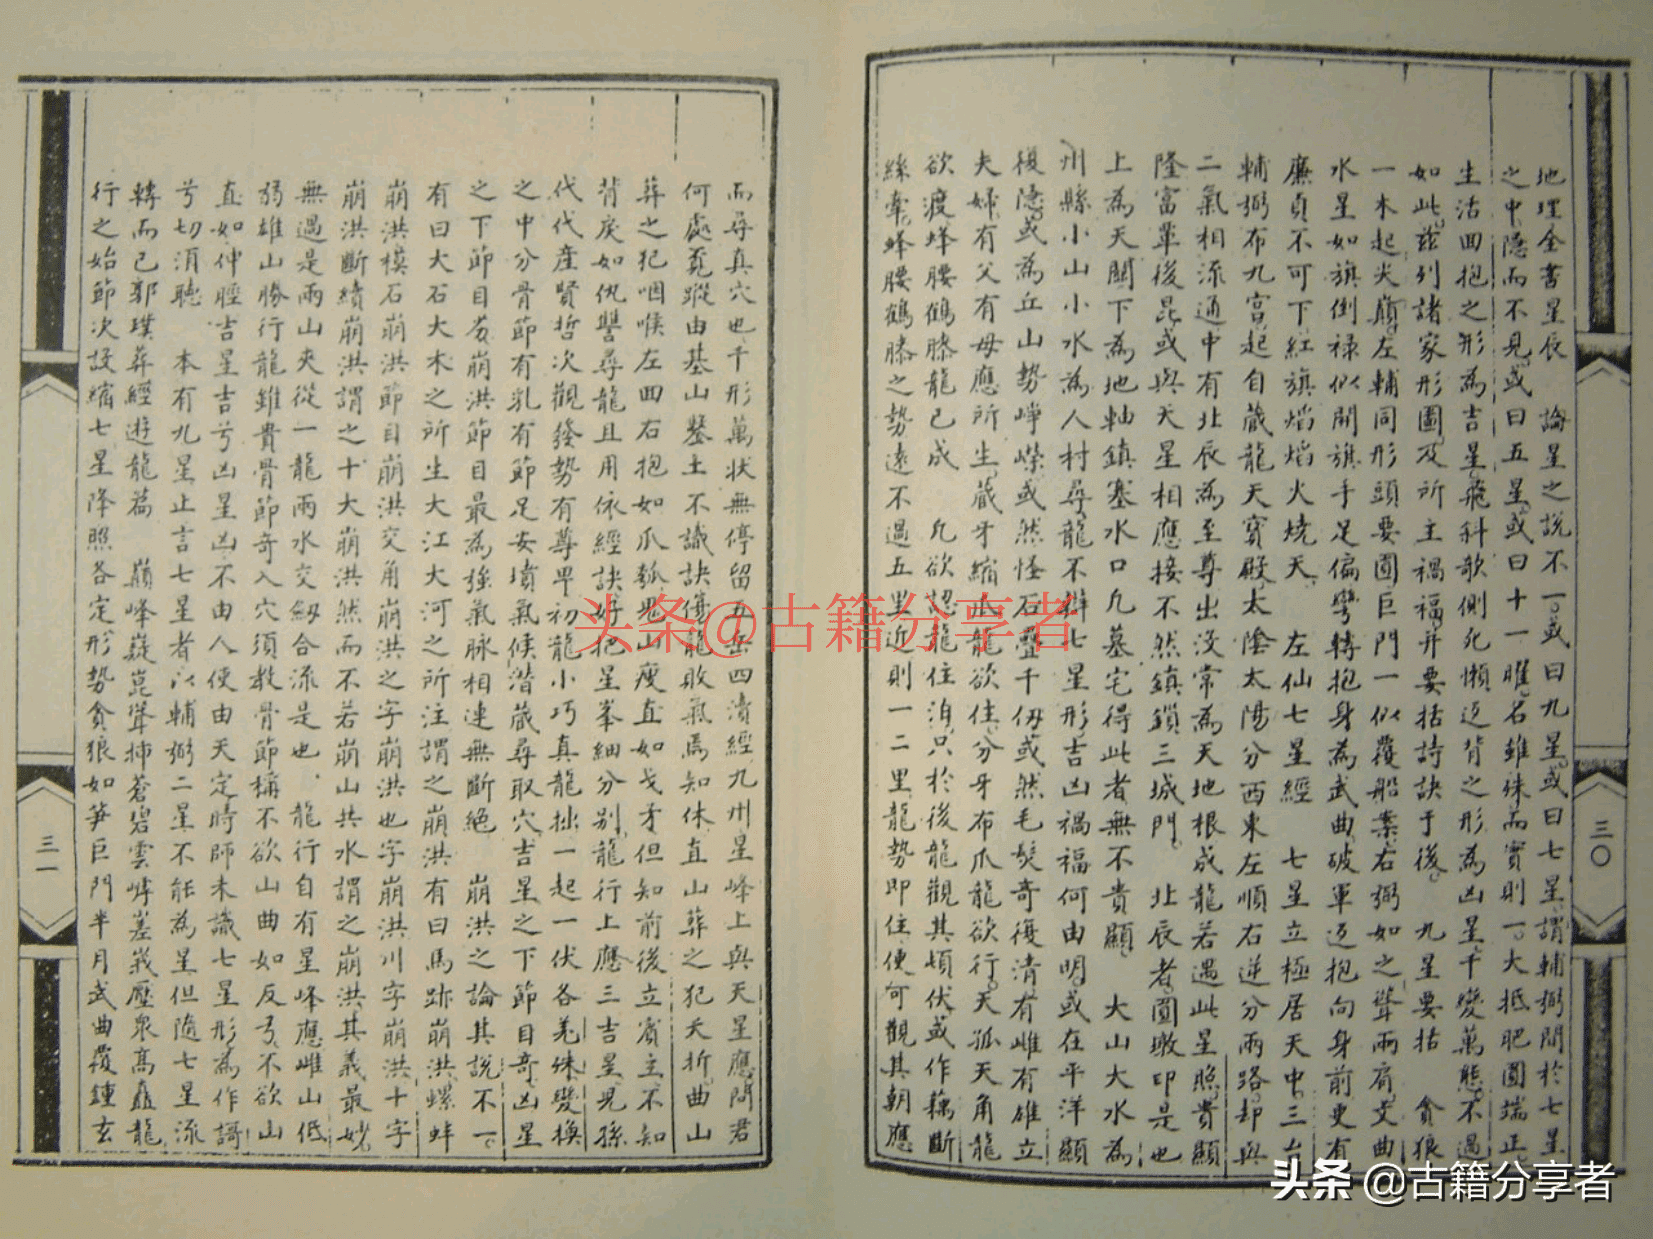 地理全書星辰 論星之說不一。或曰九星。或曰七星。謂輔弼間於七星
之中。隱而不見。或曰五星。或曰十一曜。名雖殊而實則一。大抵肥圓端正。
生活回抱之形為吉星。飛斜歌側死懶返背之形為凶星。千變萬態。不過
如此。茲列諸家形圖。及所主禍福。并要括詩訣于後。 九星要括 貪狼
一木起尖巔。左輔同形頭要圓巨門一似覆船案。右弼如之聳兩肩。文曲
水星如旗倒祿似開旗手足偏彎轉抱身為武曲。破軍返抱向身前更有
廉貞不可下。紅旗焰焰火燒天。 左仙七星經 七星立極居天中。三台
輔弼布九宮。起自藏龍天寶殿。太陰太陽分西東左順右逆分兩路。却與
二氣相流通中有北辰為至尊出沒常為天地根成龍若遇此星照。貴顯
隆富輩後昆。或與天星相應接不然鎮鎖三城門。 北辰者。圓墩印是也
上為天關下為地軸鎮塞水口凡墓宅得此者無不貴顯。 大山大水為
州縣小山小水為人村尋龍不辨七星形吉凶禍福何由明。或在平洋顯
復隱。或為丘山勢崢嶸。或然怪石疊千仭。或然毛髮奇復清有雌有雄立
夫婦。有父有母應所生。藏牙縮爪龍欲住。分牙布爪龍欲行。天孤天角龍
欲渡。蜂腰鶴膝龍已成 凡欲認龍住泊。只於後龍觀其頓伏或作藕斷
絲牽。蜂腰鶴膝之勢遠不過五里近則一二里。龍勢即住。便可觀其朝應
而尋真穴也。千形萬狀無停留五岳四瀆經九州星峰上與天星應問君
何處覓蹤由基山鑿土不識訣傷龍敗氣焉知休直山葬之犯夭折。曲山
葬之犯咽喉左回右抱如爪瓠鬼山瘦直如戈矛但知前後立賓主不知
背戾如仇讐尋龍且用依經訣好把星峯細分別。龍行上應三吉星兒孫
代代產賢哲次觀發勢有尊卑初龍小巧真龍拙一起一伏各差殊變換
之中分骨節有乳有節足安墳氣候潛藏尋取穴。吉星之下節目奇凶星
之下節目為崩洪節目最為強氣脉相連無斷絕 崩洪之論其說不一。
有曰大石大木之所生大江大河之所注謂之崩洪有曰馬跡崩洪螺蚌
崩洪模石崩洪節目崩洪交角崩洪之字崩洪也字崩洪川字崩洪十字
崩洪斷續崩洪謂之十大崩洪然而不若崩山共水謂之崩洪其義最妙。
無過是兩山夾從一龍兩水交劔合流是也。 龍行自有星峰應雌山低
弱雄山勝行龍雖貴骨節奇入穴須教骨節稱不欲山曲如反弓不欲山
直如伸脛吉星吉兮凶星凶不由人使由天定時師未識七星形為作謌
兮切須聽 本有九星止言七星者以輔弼二星不能為星但隨七星流
轉而已郭璞葬經遊龍篇 巔峰嶷崑聳插蒼碧雲嶂差峩壓衆髙矗龍
行之始節次設縮七星降照各定形勢貪狼如笋巨門半月武曲覆鍾玄
三〇
三一
头条@古籍分享者
头条 @古籍分享者